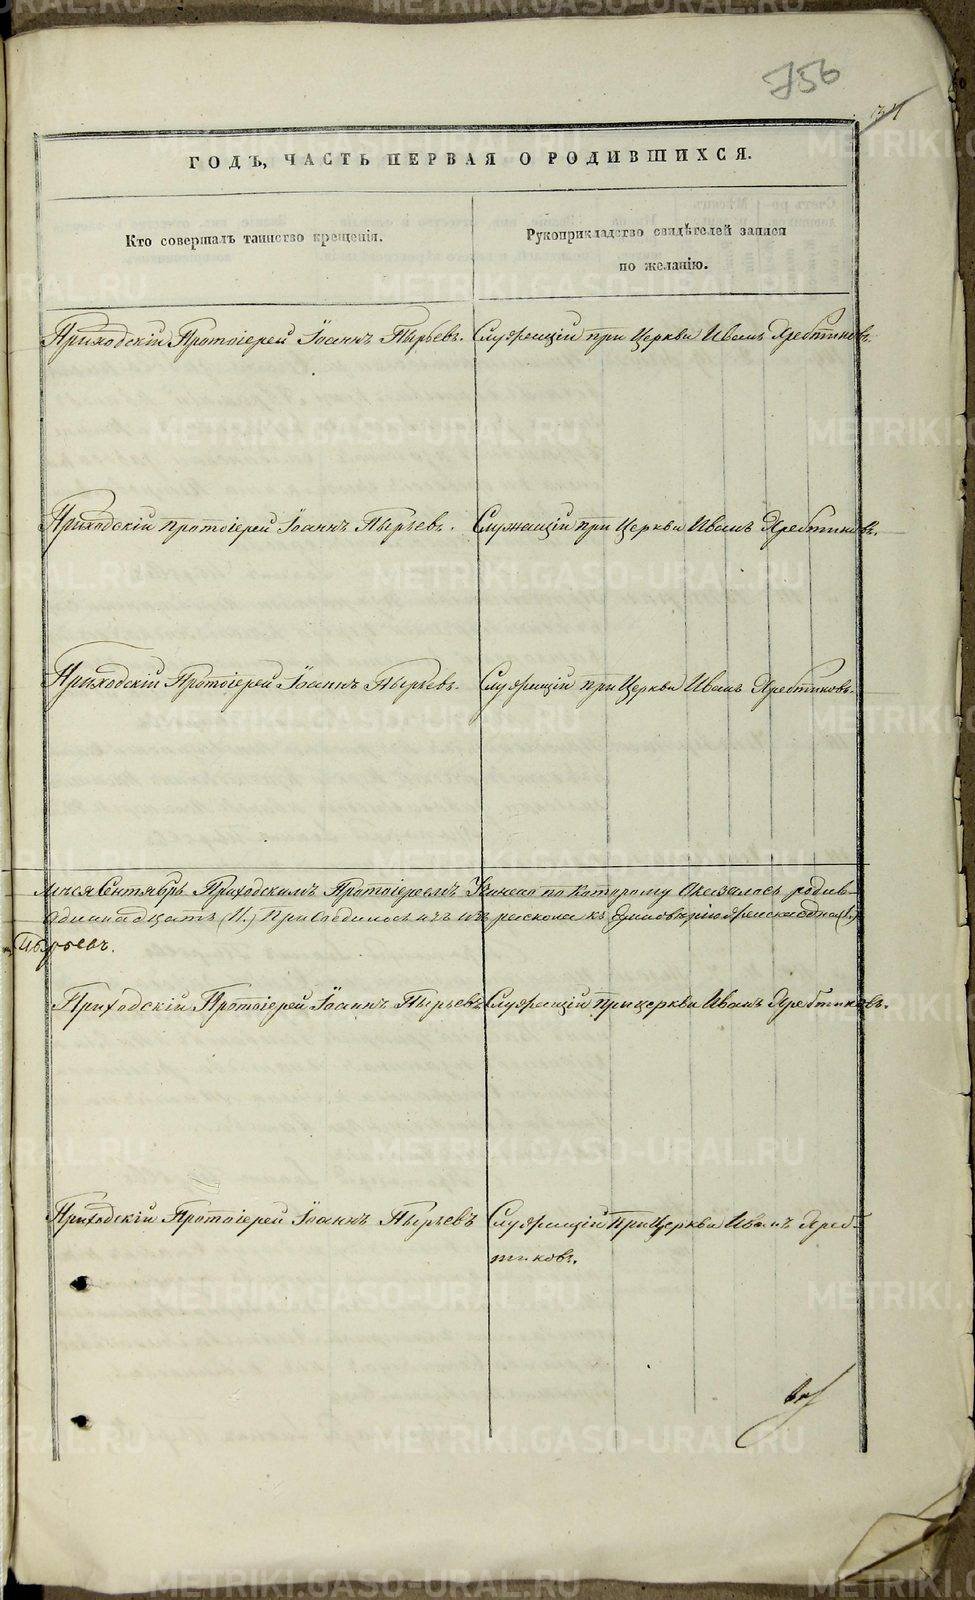 756
ГОДЪ, ЧАСТЬ ПЕРВАЯ О РОДИВШИХСЯ.
Кто совершалъ таинство крещенія.
Рукоприкладство свидѣтелей записи
по желанію.
Приходскій Протоіерей Іоаннъ Пырьевъ. Служащій при Церкви Иванъ
Приходскій протоіерей Іоаннъ Пырьевъ. Служащій при Церкви Иванъ
Приходскій Протоіерей Іоаннъ Пырьевъ. Служащій при Церкви Иванъ
Сентябрь Приходскимъ Протоіереемъ по которому Оказалось родив-
одинадцать (11.) Присоединилось изъ раскола къ Единовѣрію женска одна (1.)
Пырьевъ.
Приходскій Протоіерей Іоаннъ Пырьевъ Служащій при церкви Иванъ
Приходскій Протоіерей Іоаннъ Пырьевъ Служащій при Церкви Иванъ
тиковъ.
METRIKI.GASO-URAL.RU